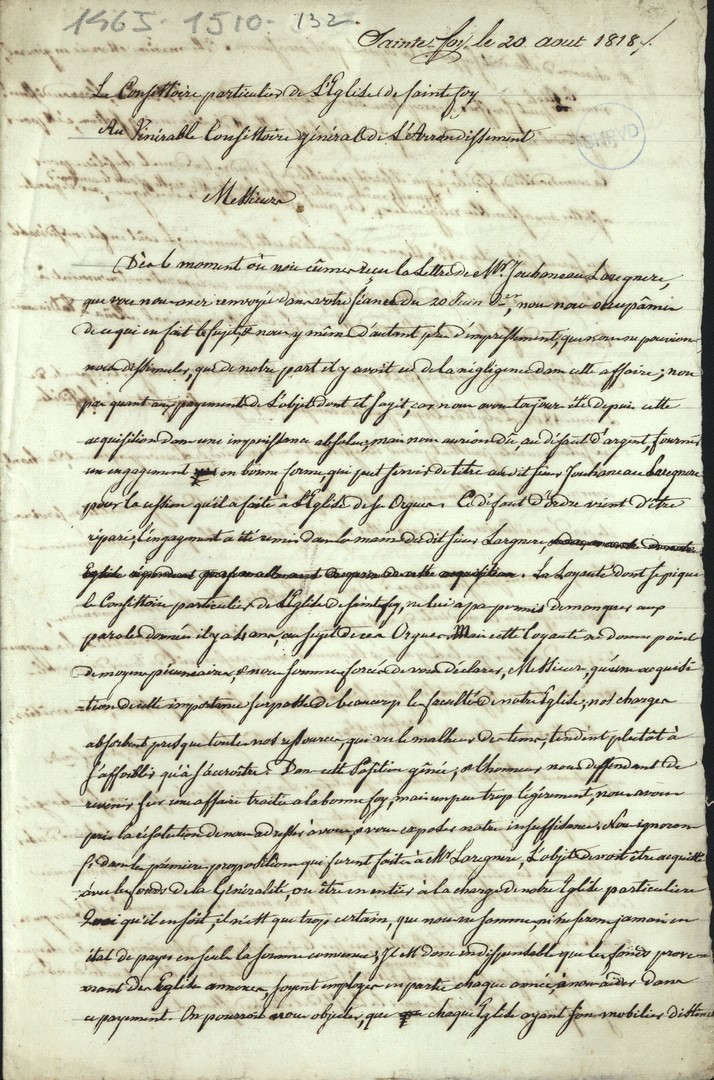 1465. 1510. 132.
Sainte foy, le 20. aout 1818/.
Le Consistoire particulier de L'Eglise de Sainte foy
Au Vénérable Consistoire général de L'Arrondissement
SHPVD
Messieurs
Dès le moment où nous eûmes reçu la Lettre de Mr. Jouhaneau Laregnere,
que vous nous avez renvoyée dans votre séance du 20 Juin Der, nous nous occupâmes
de ce qui en fait le sujet, & nous y mîmes d'autant plus d'empressement, que nous ne pouvions
nous dissimuler, que de notre part il y avoit eu de la négligence dans cette affaire; non
pas quant au payement de L'objet dont il s'agit, car nous avons toujours été depuis cette
acquisition dans une impuissance absolue, mais nous aurions dû, au défaut d'argent, fournir
un engagement en bonne forme, qui put servir de titre au dit sieur Jouhaneau Laregnere
pour la cession qu'il a faite à L'Eglise de ses Orgues. Ce défaut d'ordre vient d'être
réparé, l'engagement a été remis dans les mains du dit sieur Laregnere,
Eglise . La Loyauté dont se pique
le Consistoire particulier de L'Eglise de Sainte foy, ne lui a pas permis de manquer aux
paroles données il y a 4 ans, au sujet de ces Orgues. Mais cette loyauté ne donne point
de moyens pécuniaires, & nous sommes forcés de vous déclarer, Messieurs, qu'une acquisi=
=tion de cette importance surpasse de beaucoup les facultés de notre Eglise; nos charges
absorbent presque toutes nos ressources, qui vu le malheur des tems, tendent plutôt à
s'affoiblir qu'à s'accroître. Dans cette Position gênée, & l'honneur nous deffendant de
revenir sur une affaire traitée a la bonne foy, mais un peu trop légèrement, nous avons
pris la résolution de nous adresser à vous, & vous exposer notre insuffisance. Nous ignorons
si dans les premières propositions qui furent faites à Mr. Laregnere, L'objet devoit être acquitté
avec les fonds de la Généralité, ou être en entier à la charge de notre Eglise particuliere
Quoi qu'il en soit, il n'est que trop certain, que nous ne sommes ni ne serons jamais en
état de payer en seuls la somme convenue; Il est donc indispensable que les fonds prove=
=nant des Eglises annexes, soyent employés en partie chaque année, à nous aider dans
ce payement. On pourroit nous objecter, que chaque Eglise ayant son mobilier distinct